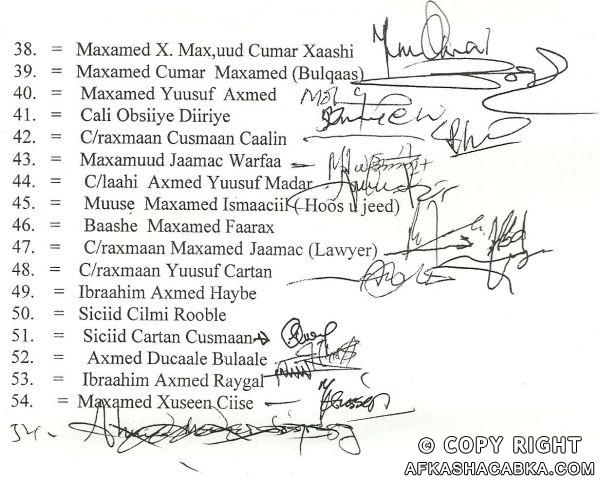 38. = Maxamed X. Max,uud Cumar Xaashi
39. = Maxamed Cumar Maxamed (Bulqaas)
40. = Maxamed Yuusuf Axmed
41. = Cali Obsiiye Diiriye
42. = C/raxmaan Cusmaan Caalin
43. = Maxamuud Jaamac Warfaa
44. = C/laahi Axmed Yuusuf Madar
45. = Muuse Maxamed Ismaaciil (Hoos u jeed)
46. = Baashe Maxamed Faarax
47. = C/raxmaan Maxamed Jaamac (Lawyer)
48. = C/raxmaan Yuusuf Cartan
49. = Ibraahim Axmed Haybe
50. = Siciid Cilmi Rooble
51. = Siciid Cartan Cusmaan
52. = Axmed Ducaale Bulaale
53. = Ibraahim Axmed Raygal
54. = Maxamed Xuseen Ciise
© COPY RIGHT
AFKASHACABKA.COM